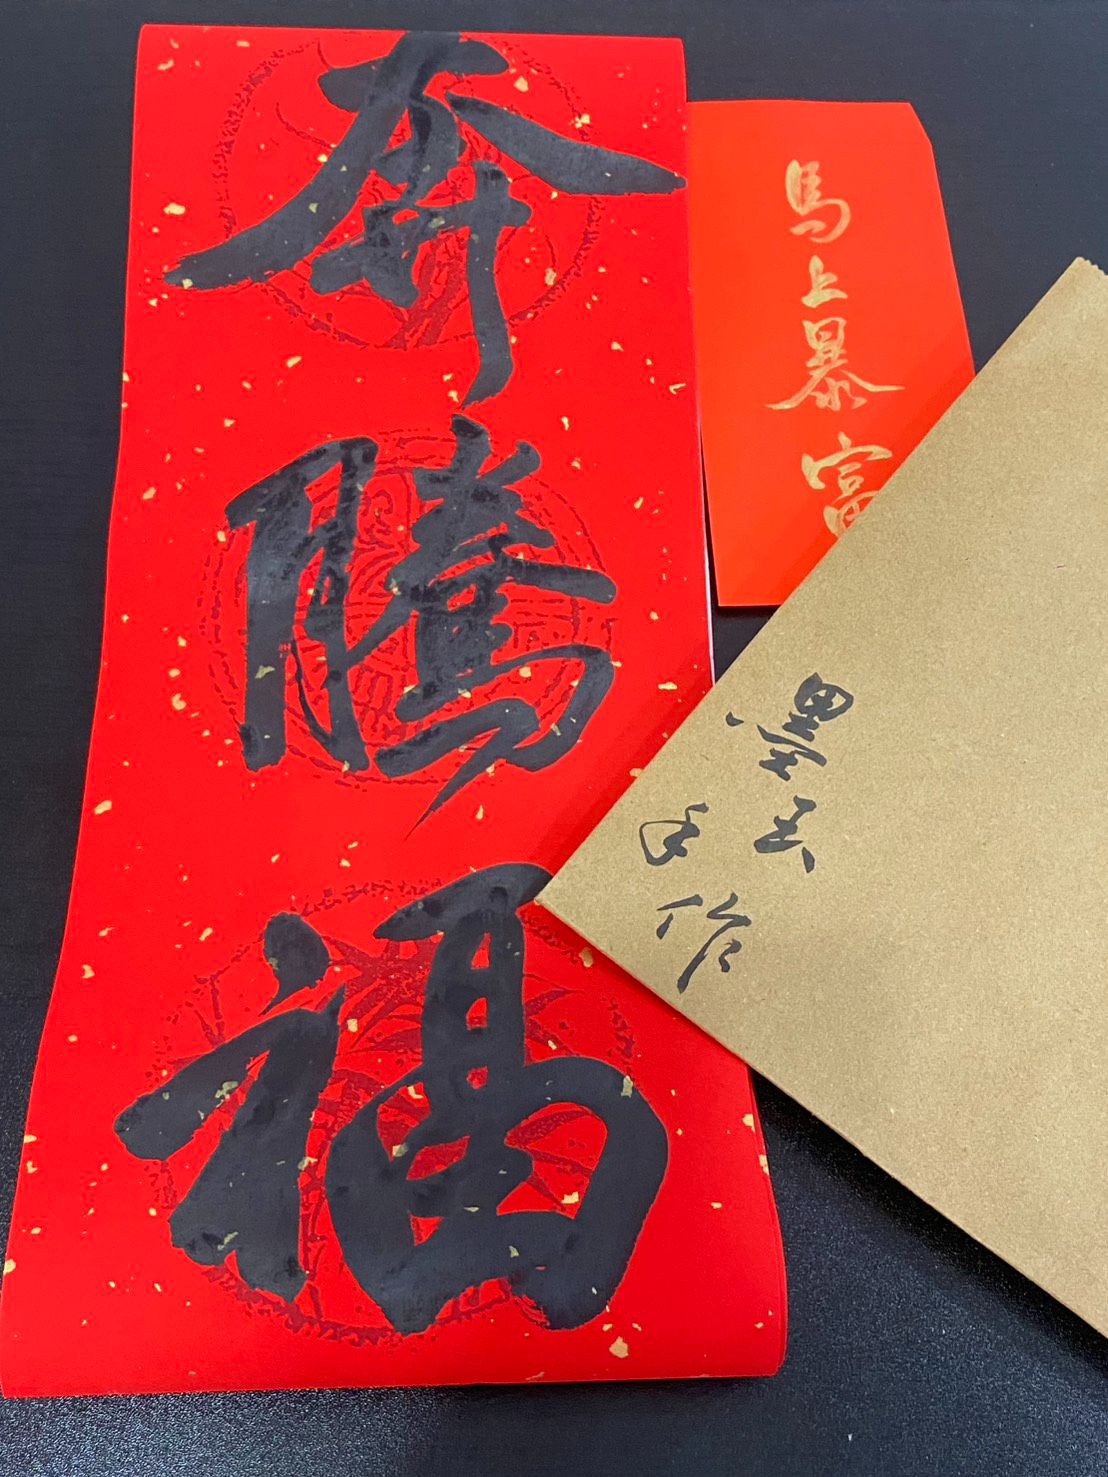 奔騰福
馬上暴富
墨云
手作